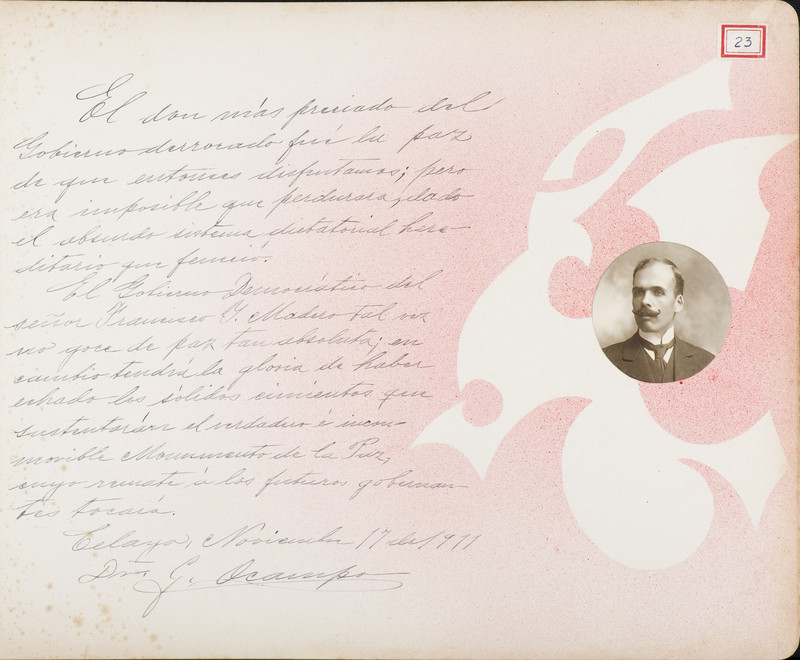 23
El don más preciado del
Gobierno derrocado fué la paz
de que entonces disfrutamos; pero
era imposible que perdurara, dado
el absurdo sistema dictatorial here-
ditario que feneció.
El Gobierno Democrático del
señor Francisco I. Madero tal vez
no goce de paz tan absoluta; en
cambio tendrá la gloria de haber
echado los sólidos cimientos que
sustentarán el verdadero é incon-
movible Monumento de la Paz,
cuyo remate á los futuros gobernan-
tes tocará.
Celaya, Noviembre 17 de 1911
G. Ocampo